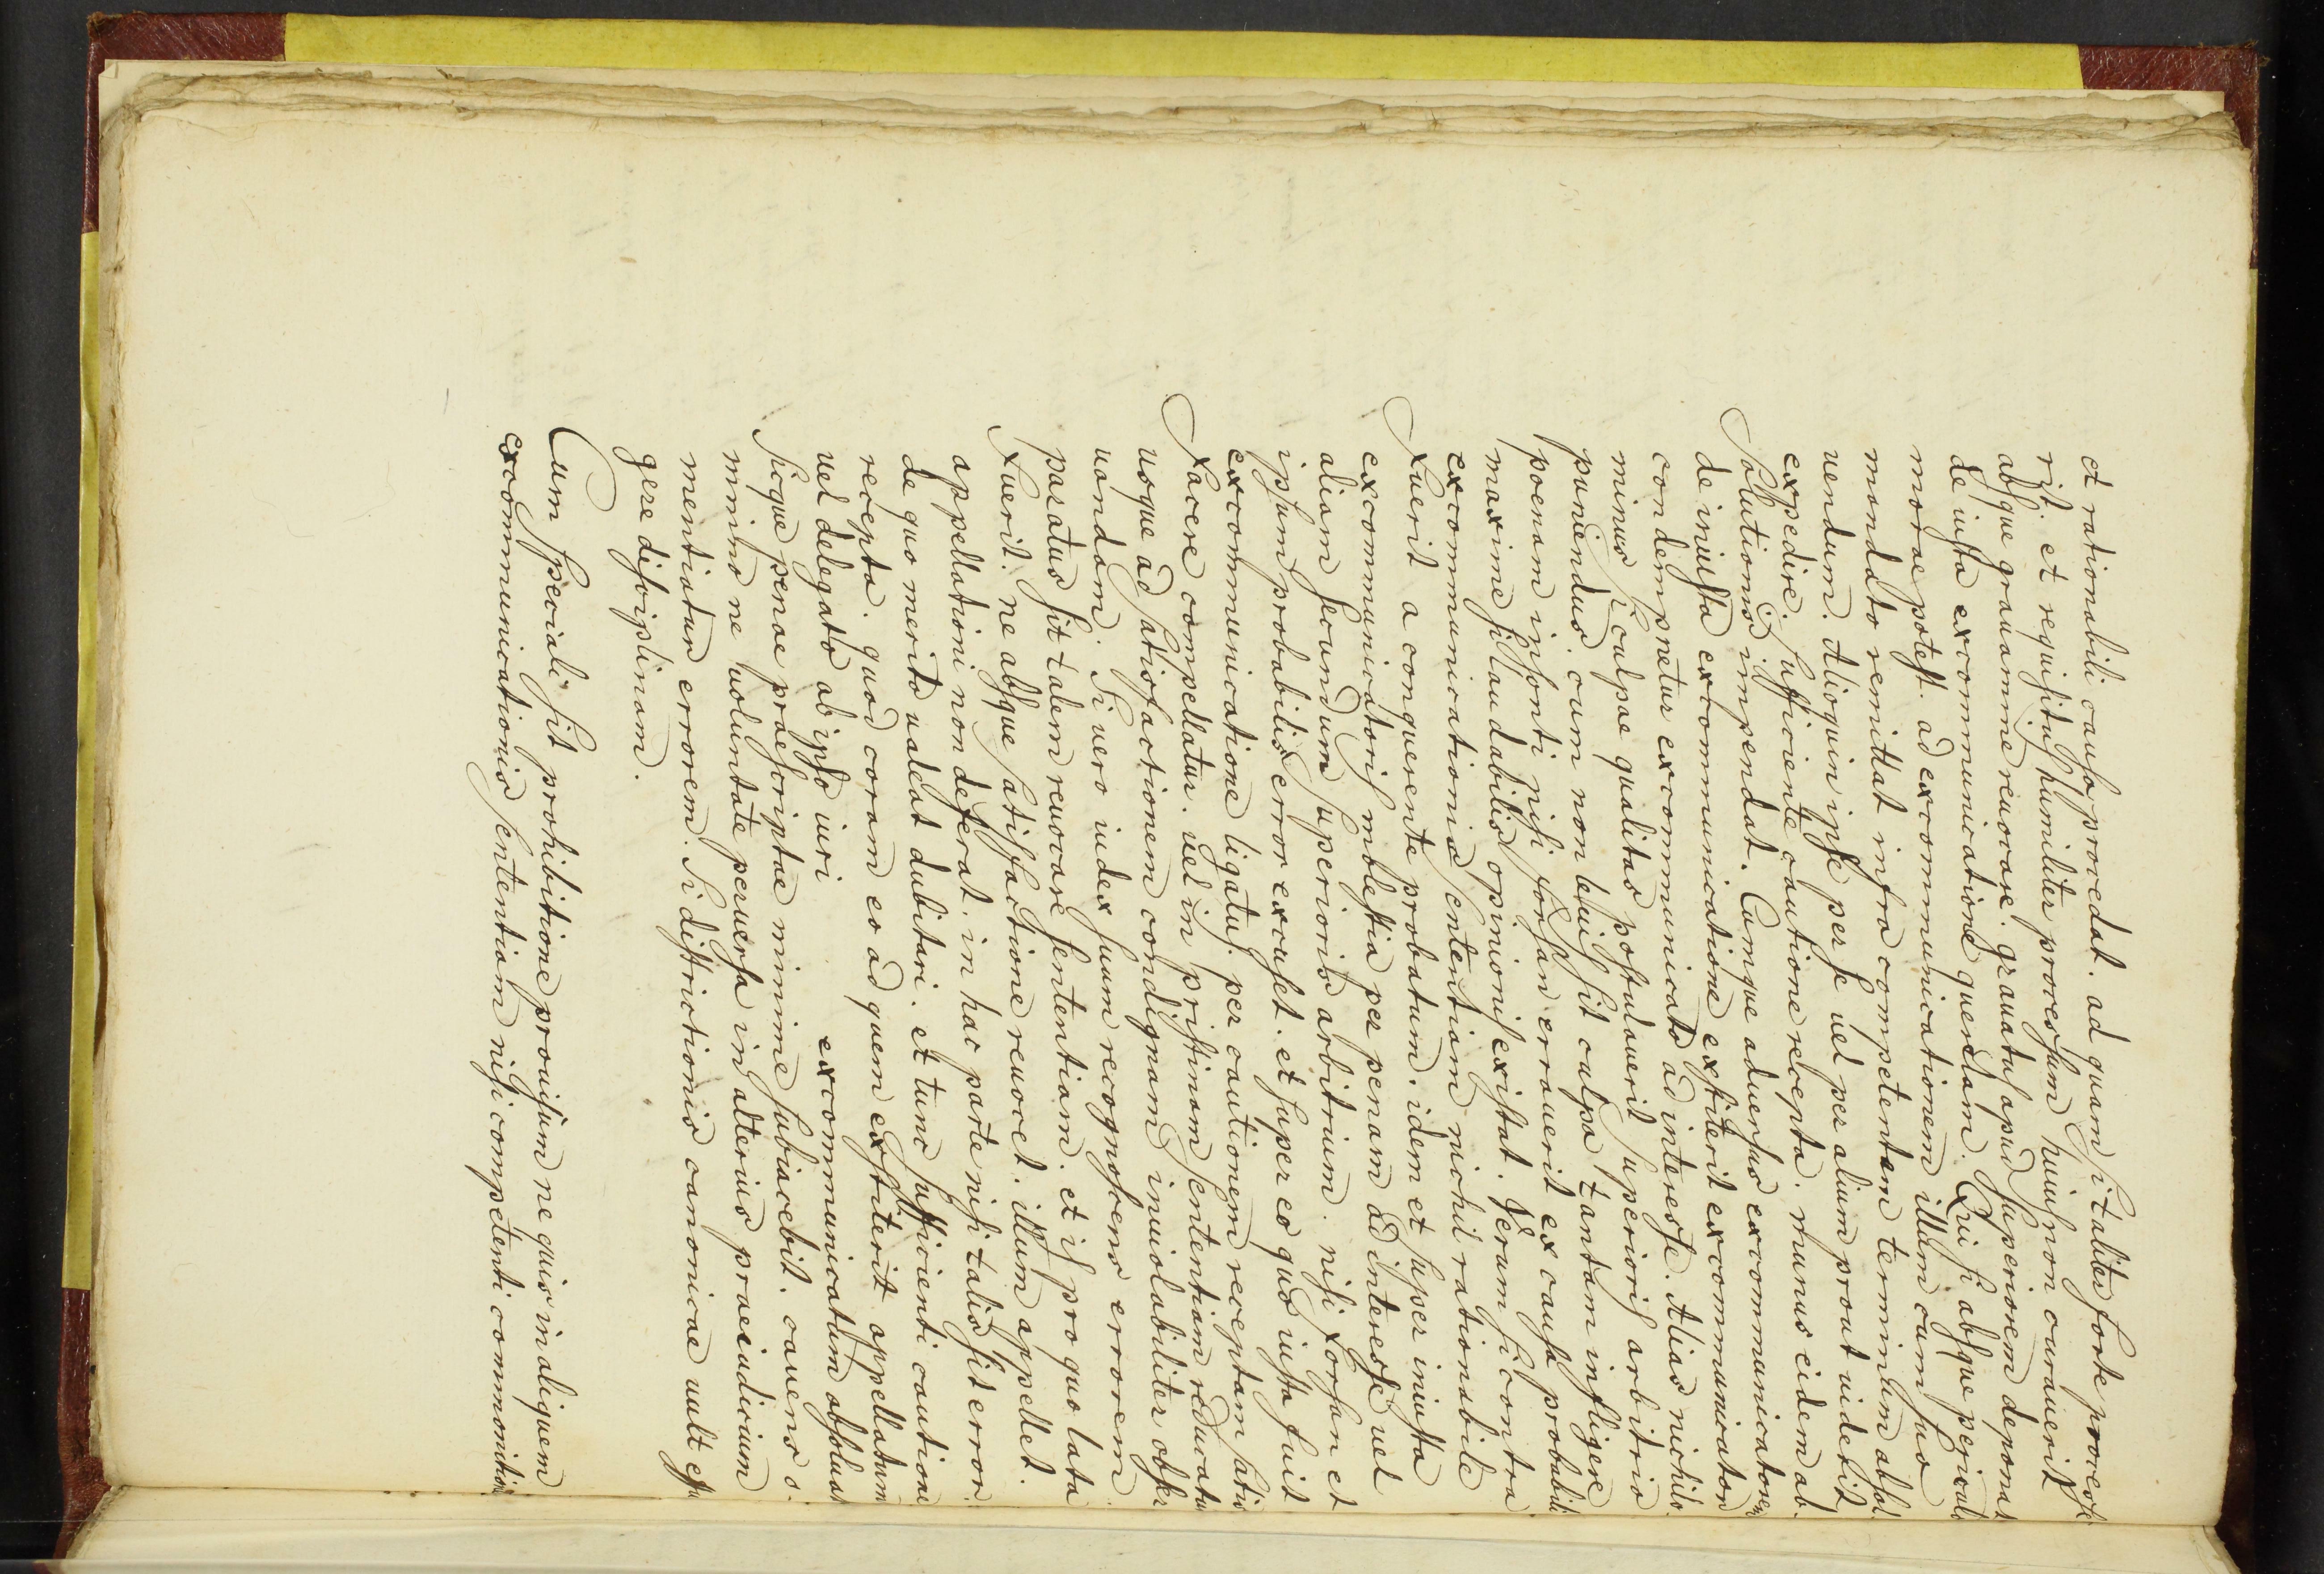 et rationabili causa procedat. ad quam si taliter forte processe
rit. et requisitus humiliter processum huiusmodi non curauerit
absque grauamine reuocare. grauatus apud superiorem deponat
de iniusta excommunicatione querelam. Qui si absque periculo
morae potest. ad excommunicatorem illum cum suo
mandato remittat infra competentem terminum absol
uendum. Alioquin ipse per se uel per alium prout uiderit
expedire. sufficiente cautione recepta. munus eidem ab
solutionis impendat. Cumque aduersus excommunicatorem
de iniusta excommunicatione exstiterit excommunicator
condempnetur excommunicato ad interesse. Alias nichilo
minus si culpae qualitas postulauerit superioris arbitrio
puniendus. cum non leuis sit culpa tantam infligere
poenam insonti nisi forsan errauerit ex causa probabili
maxime si laudabilis opinionis existat. Verum si contra
excommunicationis sententiam nichil rationabile
fuerit a conquerente probatum. idem et super iniusta
excommunicatoris molestia per penam ad interesse uel
aliam secundum superioris arbitrium. nisi forsan et
ipsum probabilis error excuset. et super eo quod iusta fuit
excommunicatione ligatus. per cautionem receptam satis
facere compellatur. uel in pristinam sententiam reducatur
usque ad satisfactionem condignam inuiolabiliter obser
uandam. Si uero iudex suum recognoscens errorem
paratus sit talem reuocare sententiam. et is pro quo lata
fuerit. ne absque satisfactione reuocet. illum appellet.
appellationi non deferat. in hac parte nisi talis sit error.
de quo merito ualeat dubitari. et tunc sufficienti cautione
recepta. quod coram eo ad quem exstiterit appellatum
uel delegato ab ipso iuri excommunicatum absoluat
sicque penae praescriptae minime subiacebit. cauens o.
mnino ne uoluntate peruersa in alterius praeiudicium
mentiatur errorem. si districtionis canonicae uult effu
gere disciplinam.
Cum speciali sit prohibitione prouisum ne quis in aliquem
excommunicationis sententiam nisi competenti commonition